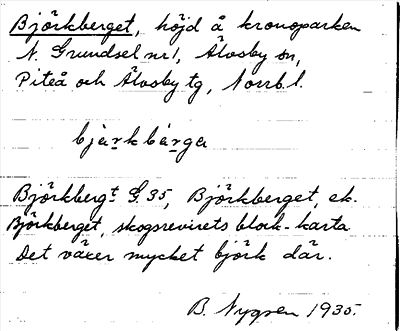 Björkberget, höjd å kronoparken
N. Grundsel nr 1, Älvsby sn,
Piteå och Älvsby tg, Norrb. l.
bjärkbärga
Björkbergt G. 35, Björkberget, ek.
Björkberget, skogsrevirets block-karta
Det växer mycket björk där.
B. Nygren 1935.